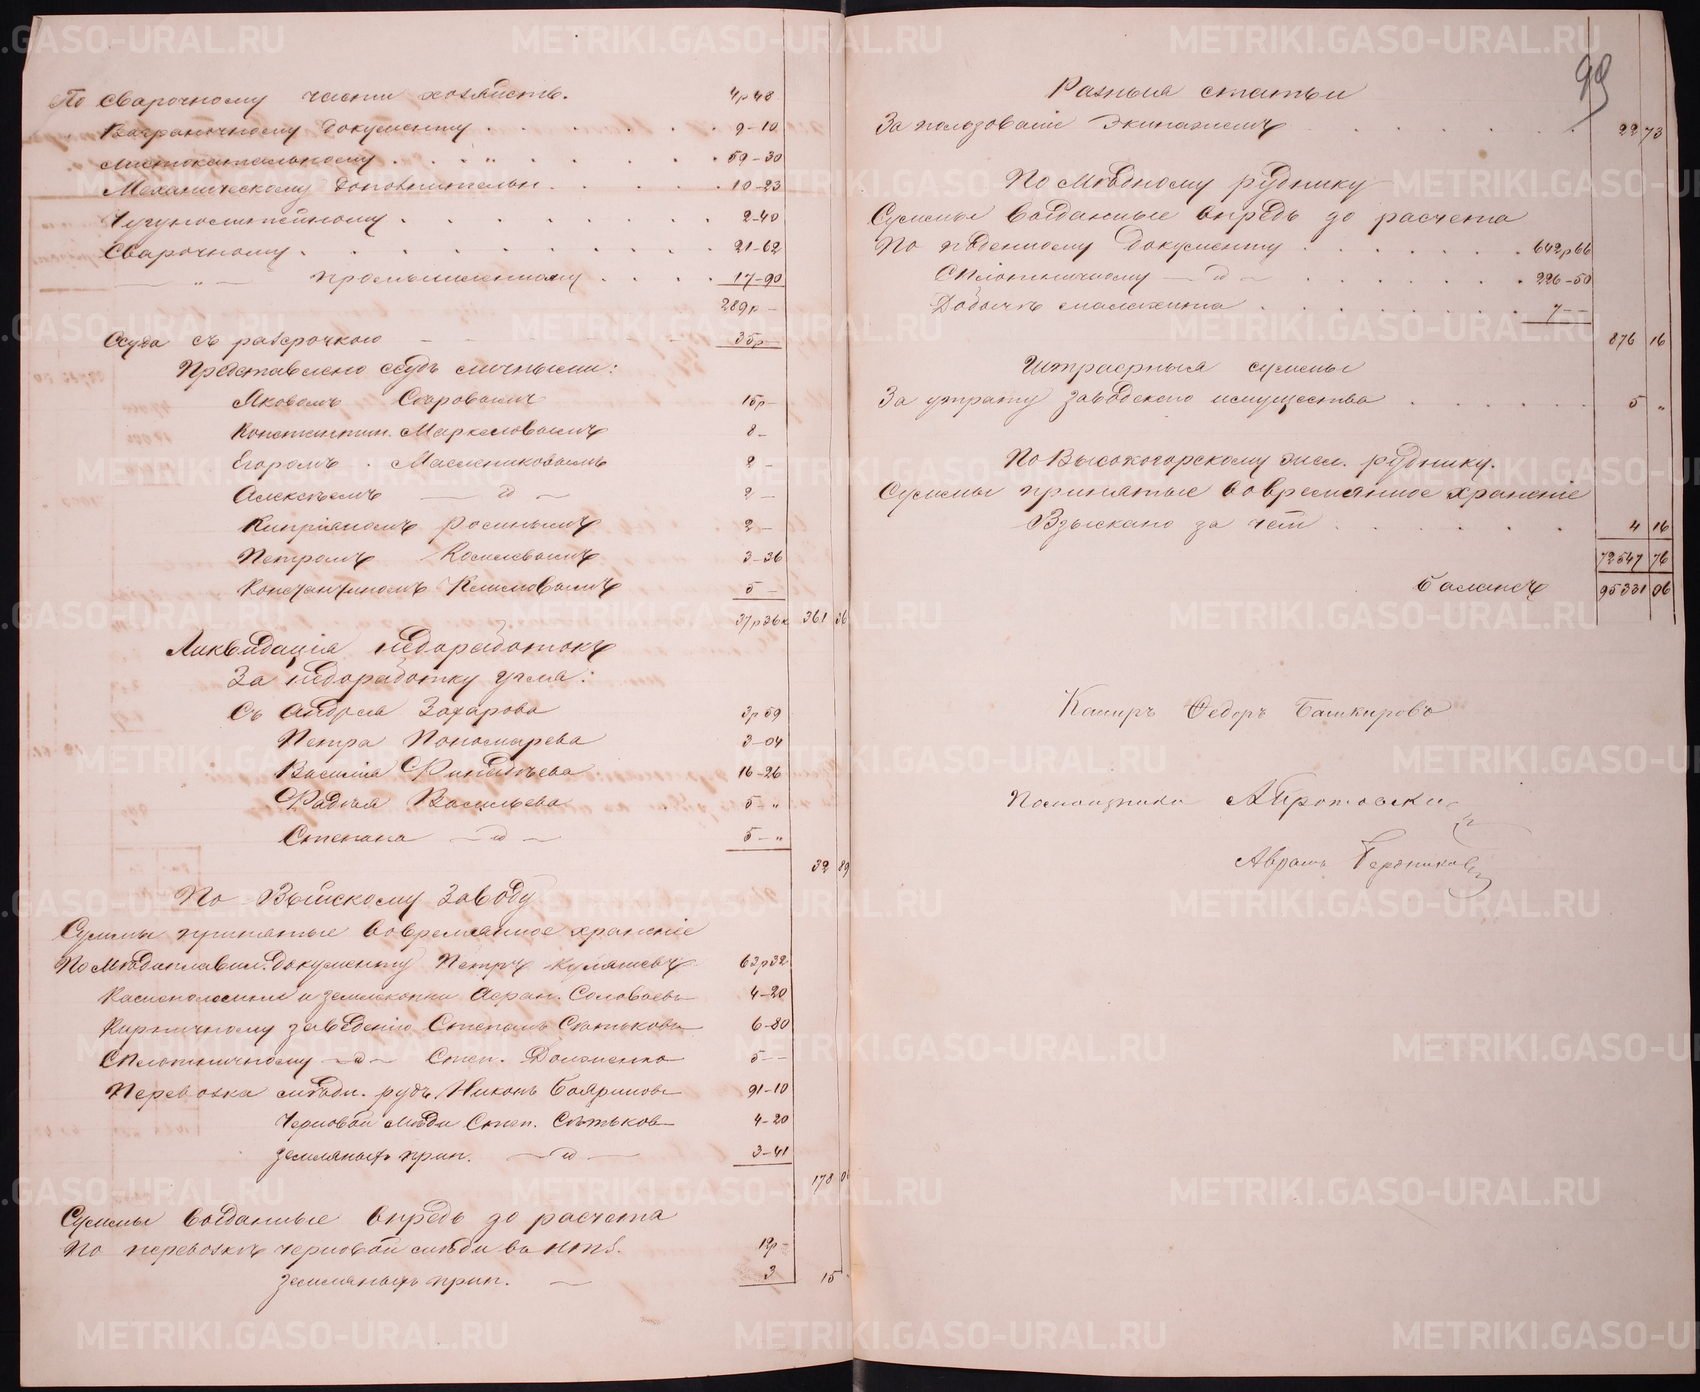 По Сварочному части хозяйств. 4р48
Ваграночному документу 9-10
Листокатальному " 59-30
Механическому дополнительн. 10-23
Чугунолитейному 2-40
Сварочному 21-62
— " — промышленному 17-90
289р —
Ссуда съ разсрочкою 35р —
Представлено ссудъ личными:
Яковомъ 15р —
Константин. Маркеловымъ 8 —
Егоромъ Масленниковымъ 2 —
Алексѣемъ — " — 2 —
Кипріяномъ 2 —
Петромъ 3-36
Константиномъ Климовымъ 5 —
37р36к 361 36
Ликвидація недоработокъ
За недоработку угля:
Съ Андрея Захарова 3р59
Петра Пономарева 3-04
Василія 16-26
Фадѣя Васильева 5 — "
Степана — " — 5 — "
32 89
По Выйскому Заводу
Суммы принятые во временное храненіе
По Мѣдиплавил. документу Петръ 63р32
Каменоломни и землекопы Афан. Соловьевъ 4-20
Кирпичному заведенію Степанъ Сѣтьковъ 6-80
Плотничному — " — Степ. 5 — —
Перевозка мѣдн. рудъ Никонъ Бояриновъ 91-10
Черновой мѣди Степ. Сѣтьков 4-20
земляныхъ прип. — " — 3-41
178 0
Суммы выданные впредь до расчета
По перевозкѣ черновой мѣди 12р —
земляныхъ прип. — 3
15
99
Разныя статьи
За пользованіе экипажемъ 22 73
По Мѣдному руднику
Суммы выданные впредь до расчета
По подённому документу 642р66
Плотничному — " — 226-50
Добычѣ малахита 7 — —
876 16
Штрафныя суммы
За утрату заводскаго имущества 5 "
По Высокогорскому жел. руднику.
Суммы принятые во временное храненіе
Взыскано за 4 16
72547 76
Балансъ 95331 06
Кассиръ Федоръ Башкировъ
Помощники
Аврамъ